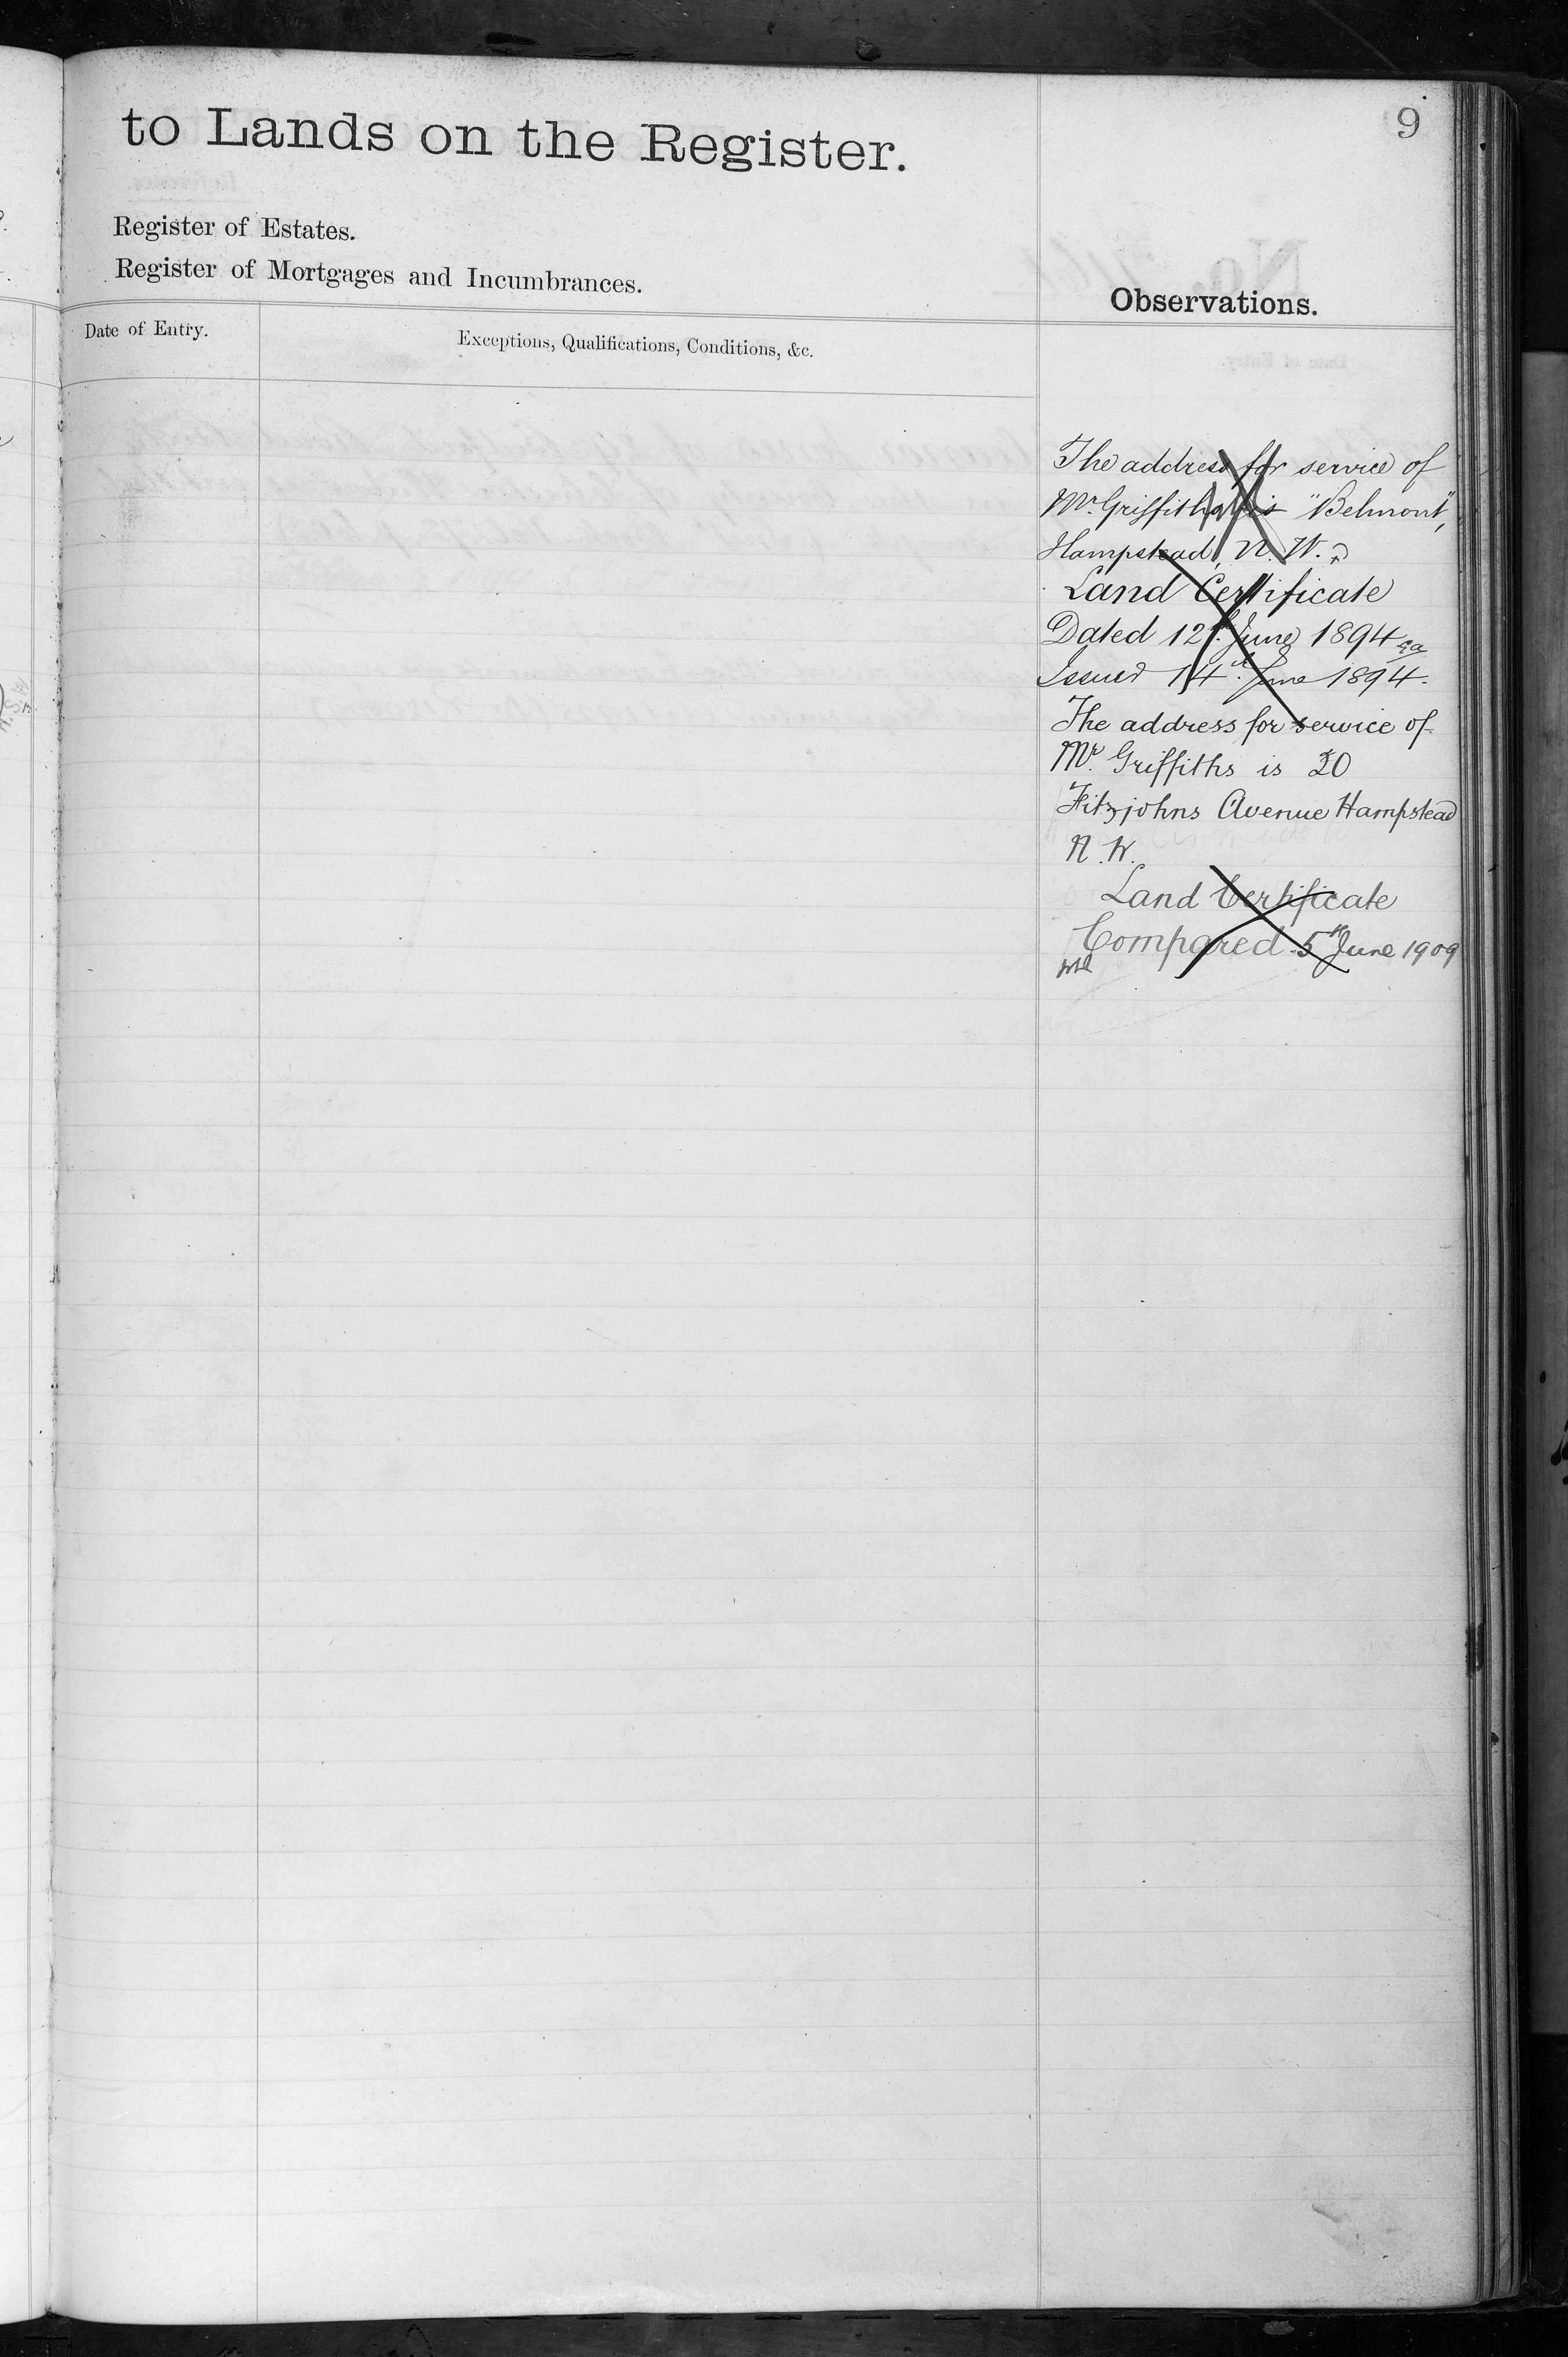 9
to Lands on the Register.
Register of Estates.
Register of Mortgages and Incumbrances.
Observations.
Date of Entry.
Exceptions, Qualifications, Conditions, &c.
The address for service of
Mr. Griffiths is "Belmont",
Hampstead, N. W.
Land Certificate
Dated 12th June 1894
Issued 14th June 1894.
The address for service of
Mr. Griffiths is 20
Fitzjohns Avenue Hampstead
N. W.
Land Certificate
Compared 5th June 1909